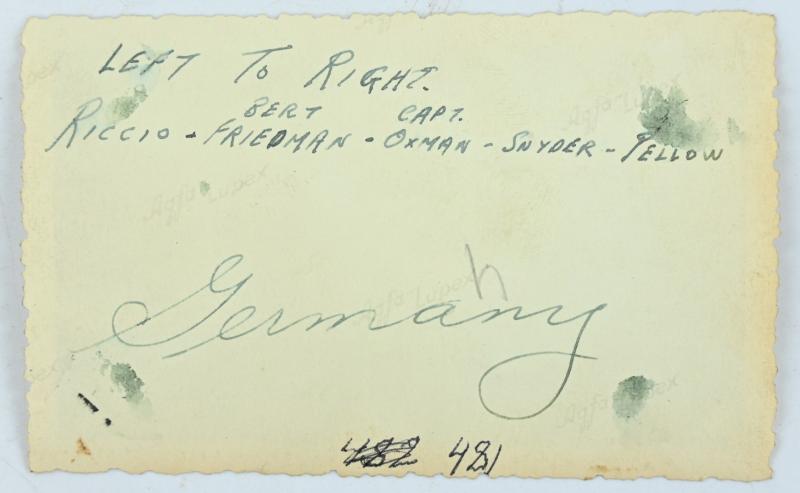 LEFT TO RIGHT.
BERT CAPT.
RICCIO - FRIEDMAN - OXMAN - SNYDER - PELLOW
Agfa Lupex
Agfa Lupex
Germany
h
Agfa Lupex
Agfa Lupex
482 481